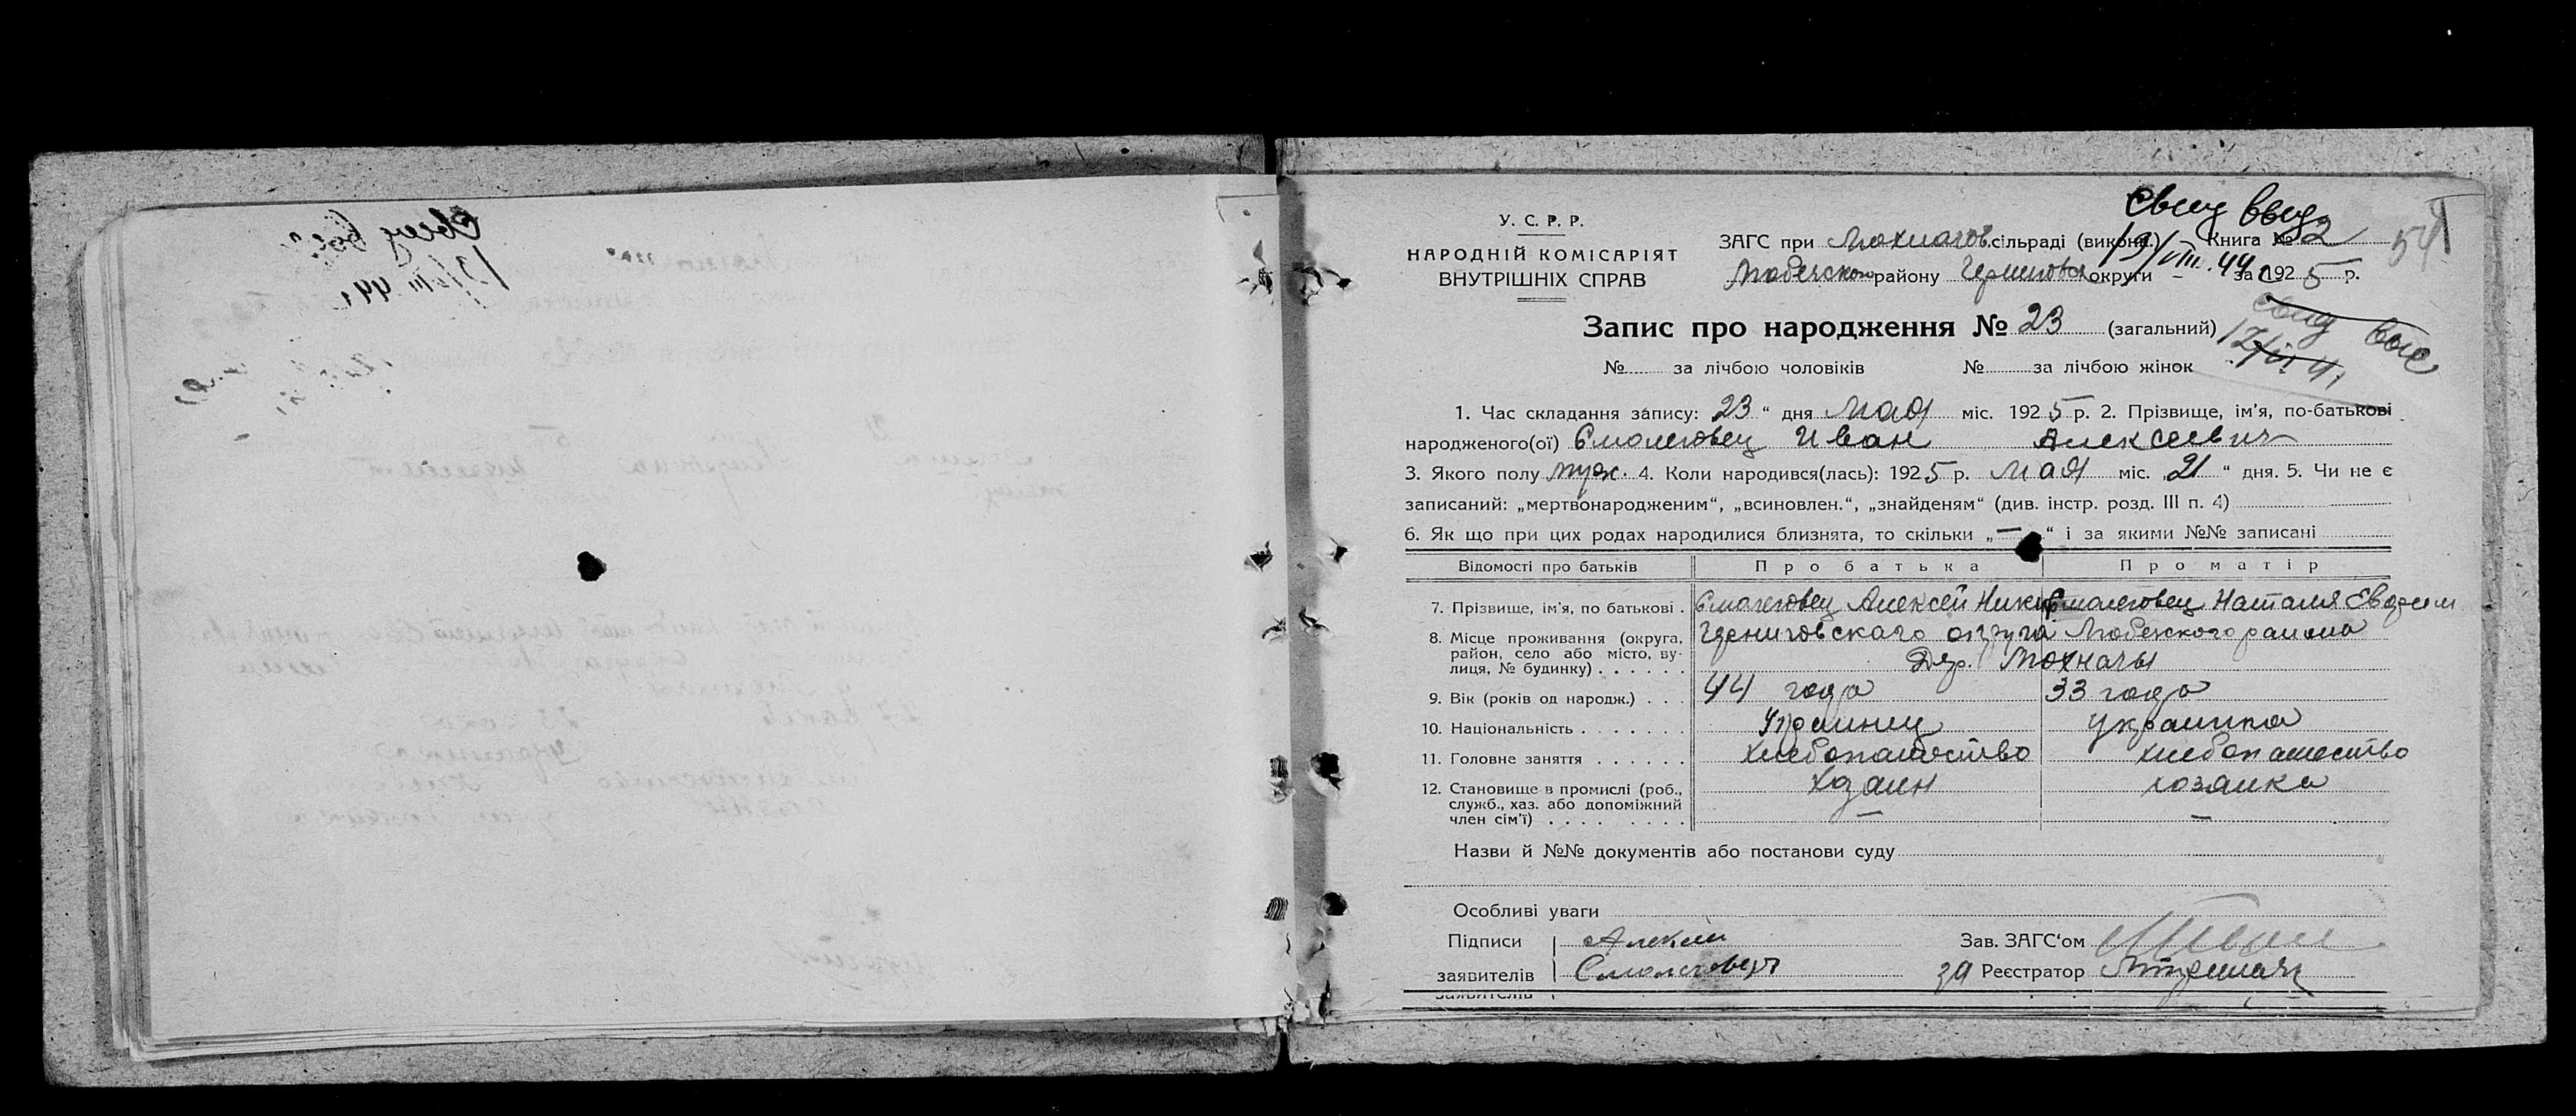 У. С. Р. Р.
НАРОДНІЙ КОМІСАРІЯТ
ВНУТРІШНІХ СПРАВ
Свид выд
13/VIII.44 г.
54
ЗАГС при Мохначов. сільраді (викона.) Книга № 2
Любечского району Черниговск округи за 1925 р.
Запис про народження № 23 (загальний)
свид выд
№ за лічбою чоловіків № за лічбою жінок
1. Час складання запису: 23 “ дня Мая міс. 1925 р. 2. Прізвище, ім'я, по-батькові
народженого(ої) Смолеговец Иван Алексеевич
3. Якого полу муж. 4. Коли народився(лась): 1925 р. Мая міс. „21 “ дня. 5. Чи не є
записаний: „мертвонародженим“, „всиновлен.“, „знайденям“ (див. інстр. розд. III п. 4)
6. Як що при цих родах народилися близнята, то скільки „—“ і за якими №№ записані
Відомості про батьків Про батька Про матір
7. Прізвище, ім'я, по батькові . Смолеговец Алексей Ники Смолеговец Наталия Евдоким
8. Місце проживання (округа, район, село або місто, вулиця, № будинку) . . . . . . Черниговского округа Любечского района
Дер. Мохначы
9. Вік (років од народж.) . . . 44 года 33 года
10. Національність . . . . . . . Украинец украинка
11. Головне заняття . . . . . . хлебопашество хлебопашество
12. Становище в промислі (роб., служб., хаз. або допоміжний член сім'ї) . . . . . . . . Хозаин хозаика
— —
Назви й №№ документів або постанови суду
Особливі уваги
Підписи Алексей Зав. ЗАГС'ом
заявителів Смолеговец за Реєстратор
заявителів